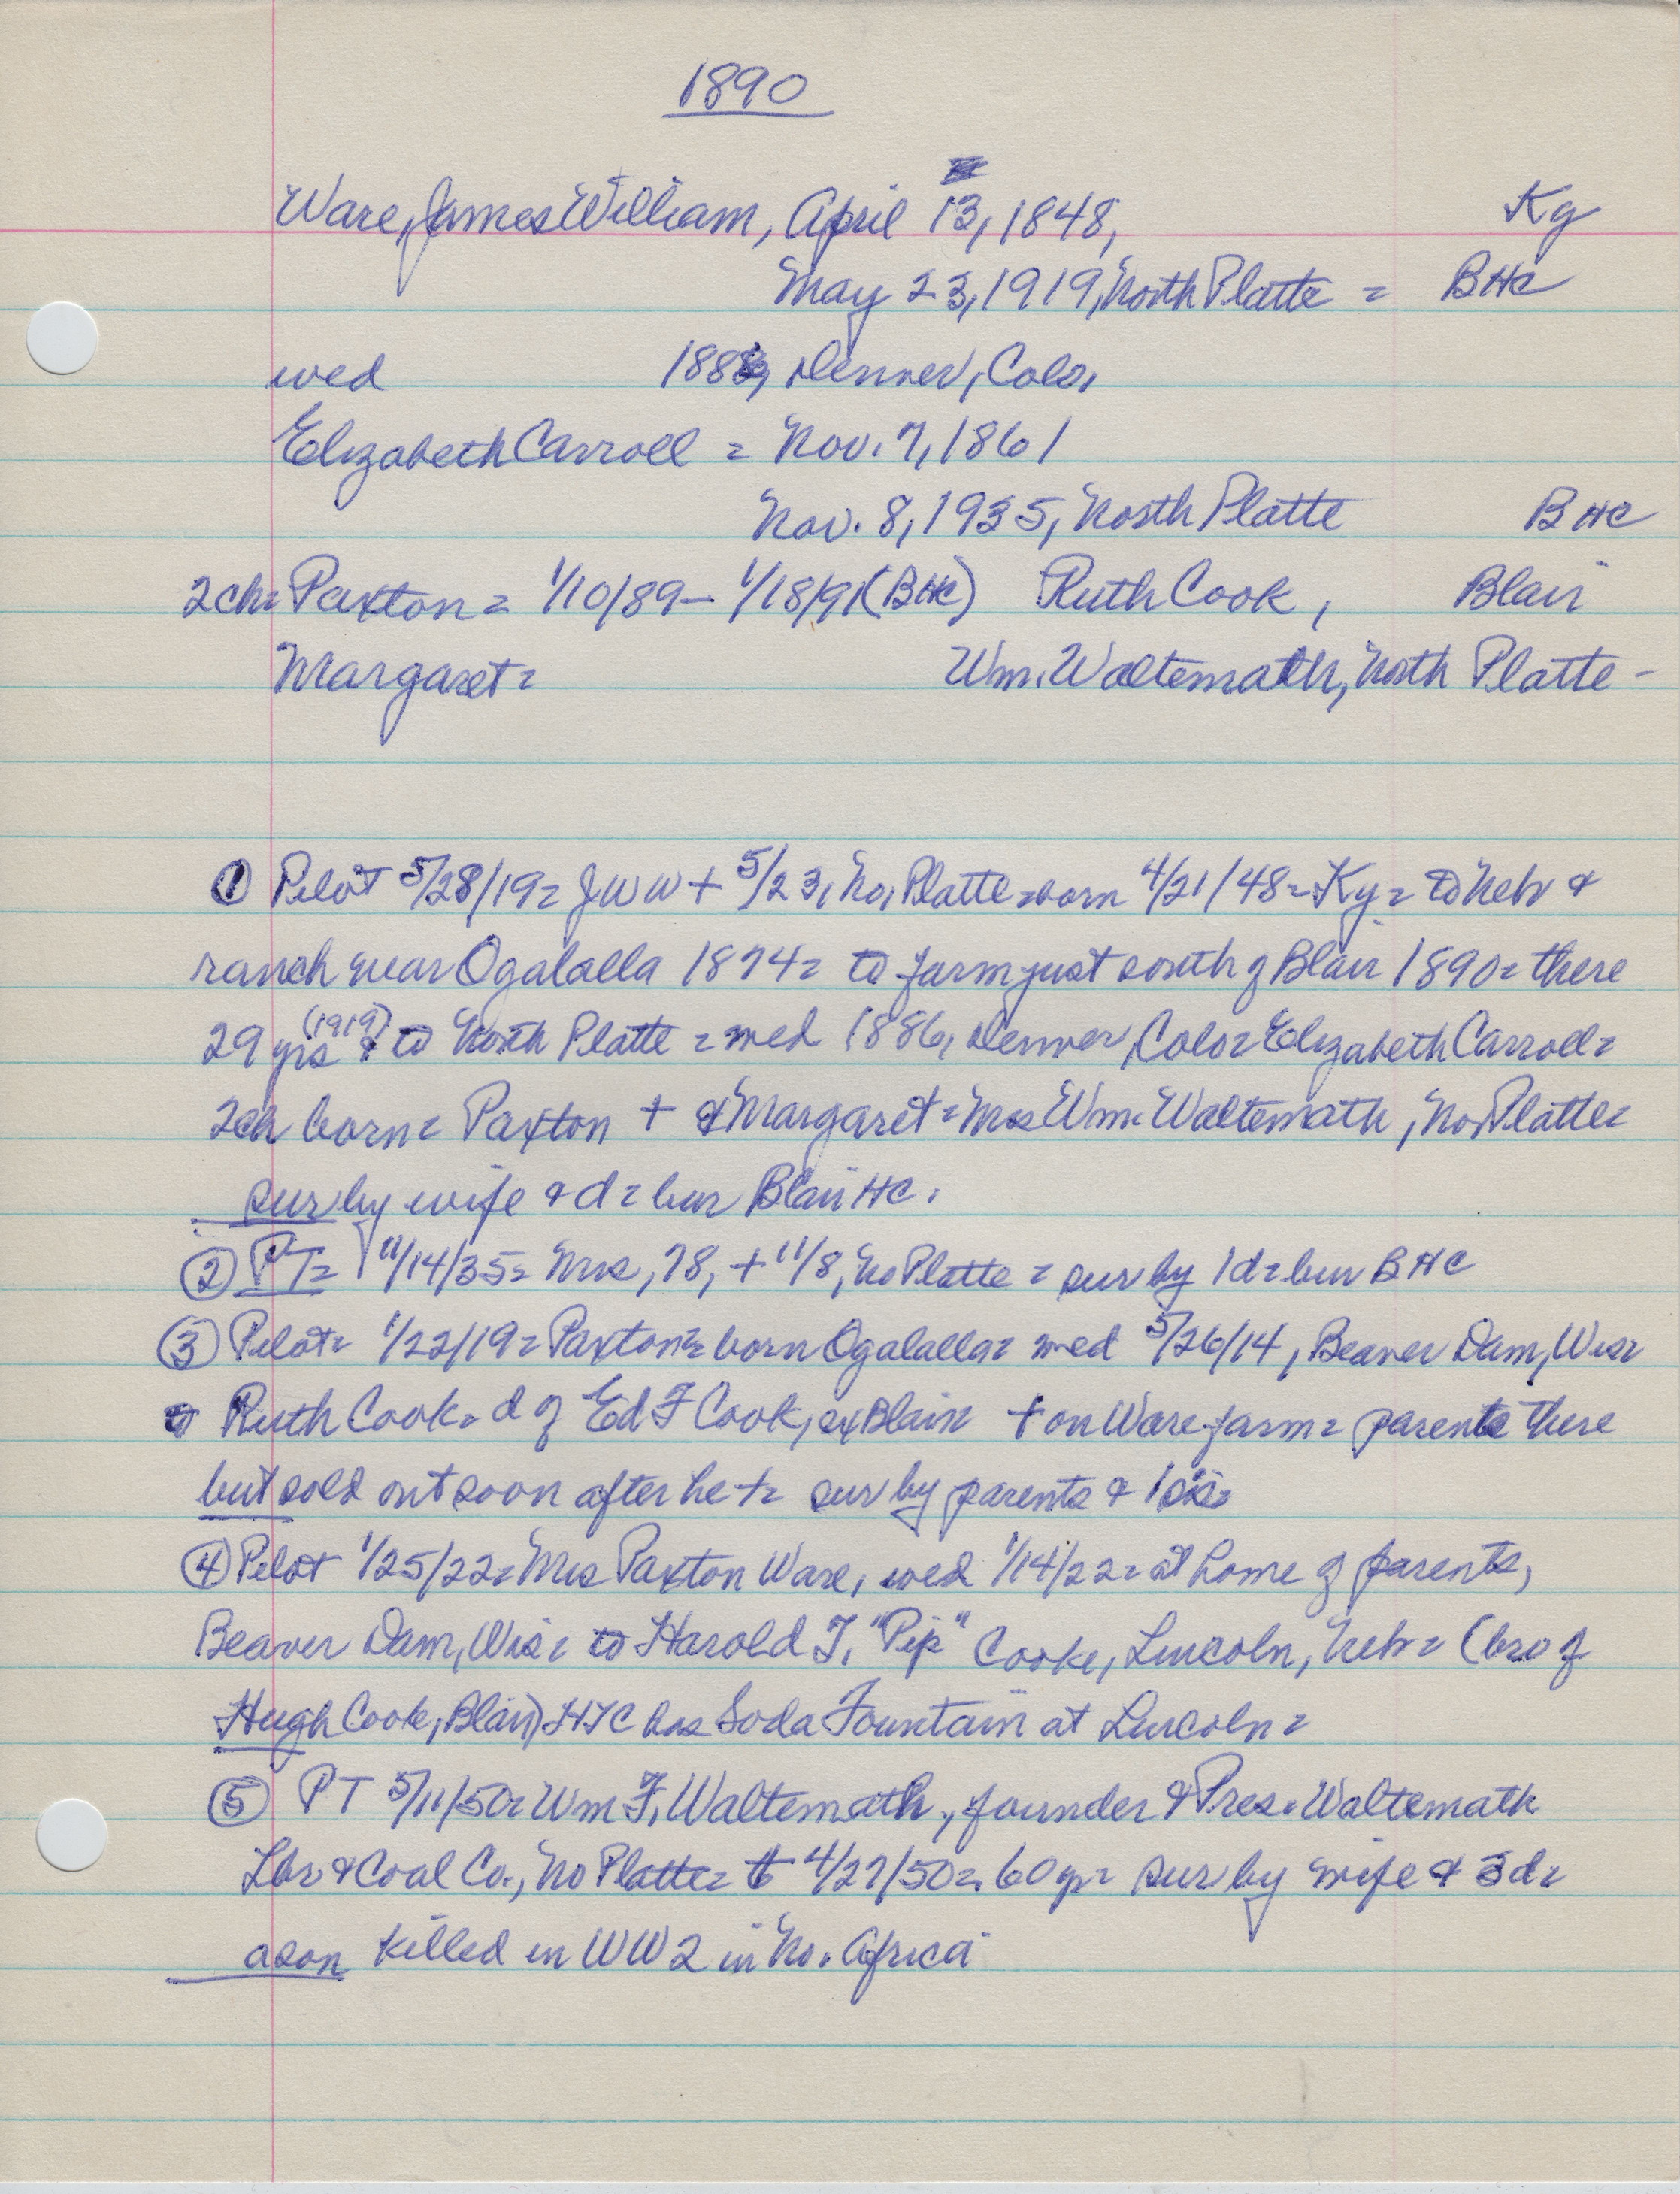 1890
Ware, James William, April 13, 1848, Ky
May 23, 1919, North Platte = BHC
wed 188 , Denver, Colo,
Elizabeth Carroll = Nov. 7, 1861
Nov. 8, 1935, North Platte BHC
2ch= Paxton = 1/10/89 - 1/18/91 (BHC) Ruth Cook, Blair
Margaret = Wm. Waltemath, North Platte -
① Pilot 5/28/19= JWW + 5/23, No, Platte = born 4/21/48 = Ky = to Neb &
ranch near Ogalalla 1874 = to farm just south of Blair 1890 = there
29 yrs & (1919) to North Platte = wed 1886, Denver, Colo = Elizabeth Carroll =
2ch born = Paxton + & Margaret = Mrs Wm. Waltemath, No, Platte =
sur by wife & d = bur Blair HC.
② PT= 11/14/35= Mrs, 78, + 11/8, No Platte = sur by 1d = bur BHC
③ Pilot= 1/22/19= Paxton = born Ogalalla = wed 5/26/14, Beaver Dam, Wis=
Ruth Cook = d of Ed F Cook, ex Blair + on Ware farm = parents there
but sold out soon after he + = sur by parents & 1 sis=
④ Pilot 1/25/22= Mrs Paxton Ware, wed 1/14/22 = at home of parents,
Beaver Dam, Wis = to Harold T. "Pip" Cooke, Lincoln, Neb = (bro of
Hugh Cook, Blair) HTC has Soda Fountain at Lincoln =
⑤ PT 5/11/50= Wm F. Waltemath, founder & Pres. Waltemath
Lbr & Coal Co., No Platte = + 4/27/50 = 60 yr = sur by wife & 3d =
a son killed in WW2 in No. Africa